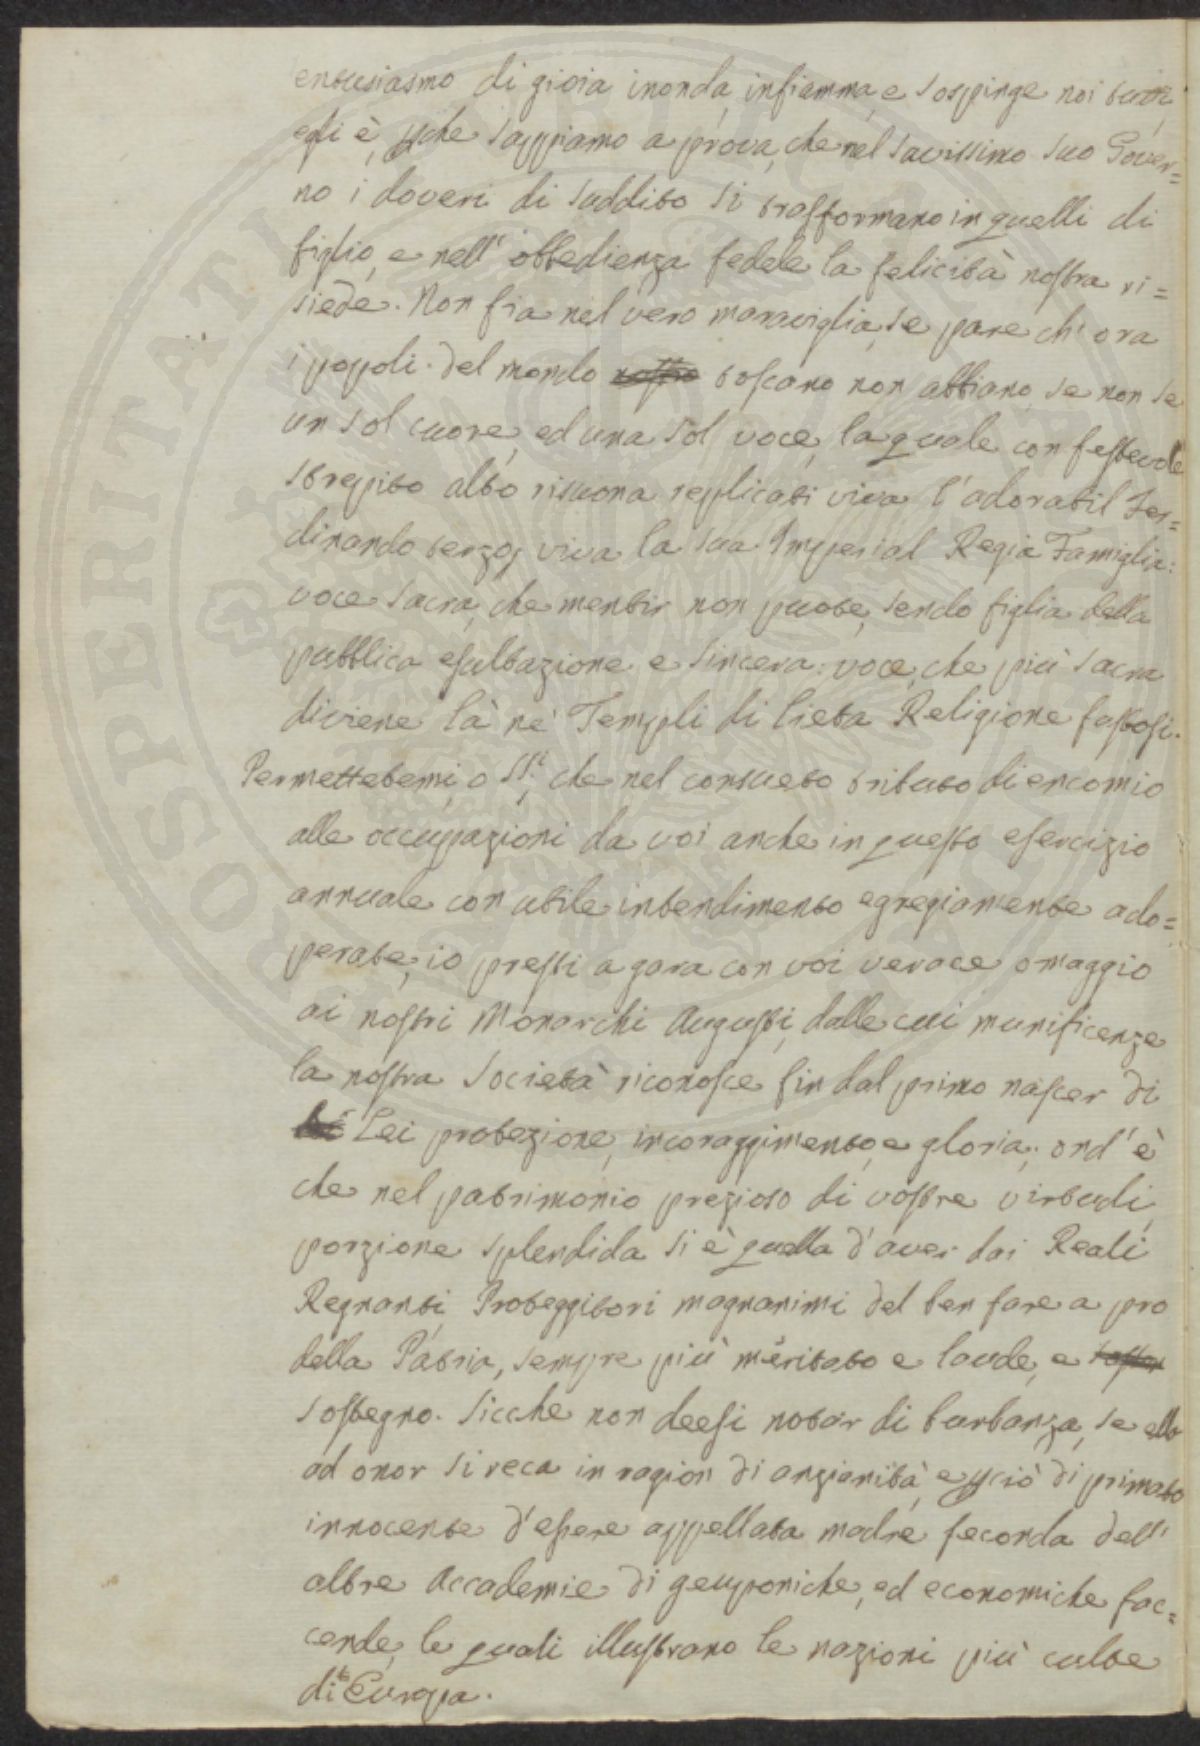 entusiasmo di gioia inonda, infiamma, e sospinge noi tutti,
egli è, pche sappiamo a prova, che nel savissimo suo Gover=
no i doveri di suddito si trasformano in quelli di
figlio, e nell' obbedienza fedele la felicità nostra ri=
siede. Non fia nel vero maraviglia, se pare ch' ora
i popoli del mondo nostro toscano non abbiano, se non se
un sol cuore, ed una sol voce, la quale con festevole
strepito alto risuona replicati viva l' adorabil Fer=
dinando terzo, viva la sua Imperial Regia Famiglia:
voce sacra, che mentir non puote, sendo figlia della
pubblica esultazione e sincera: voce, che più sacra
diviene là ne' Templi di lieta Religione fastosi.
Permettetemi, o SSi: che nel consueto tributo di encomio
alle occupazioni da voi anche in questo esercizio
annuale con utile intendimento egregiamente ado=
perate, io presti a gara con voi verace omaggio
ai nostri Monarchi Augusti, dalle cui munificenze
la nostra Società riconosce fin dal primo nascer di
Lei protezione, incoraggimento, e gloria; ond' è
che nel patrimonio prezioso di vostre virtudi,
porzione splendida si è quella d' aver dai Reali
Regnanti, Proteggitori magnanimi del ben fare a pro
della Patria, sempre più meritato e laude, e
sostegno. Sicche non deesi notar di burbanza, se ella
ad onor si reca in ragion di anzianità, e pciò di primato
innocente d' essere appellata madre feconda dell'
altre Accademie di geuponiche, ed economiche fac=
cende, le quali illustrano le nazioni più culte
di Europa.